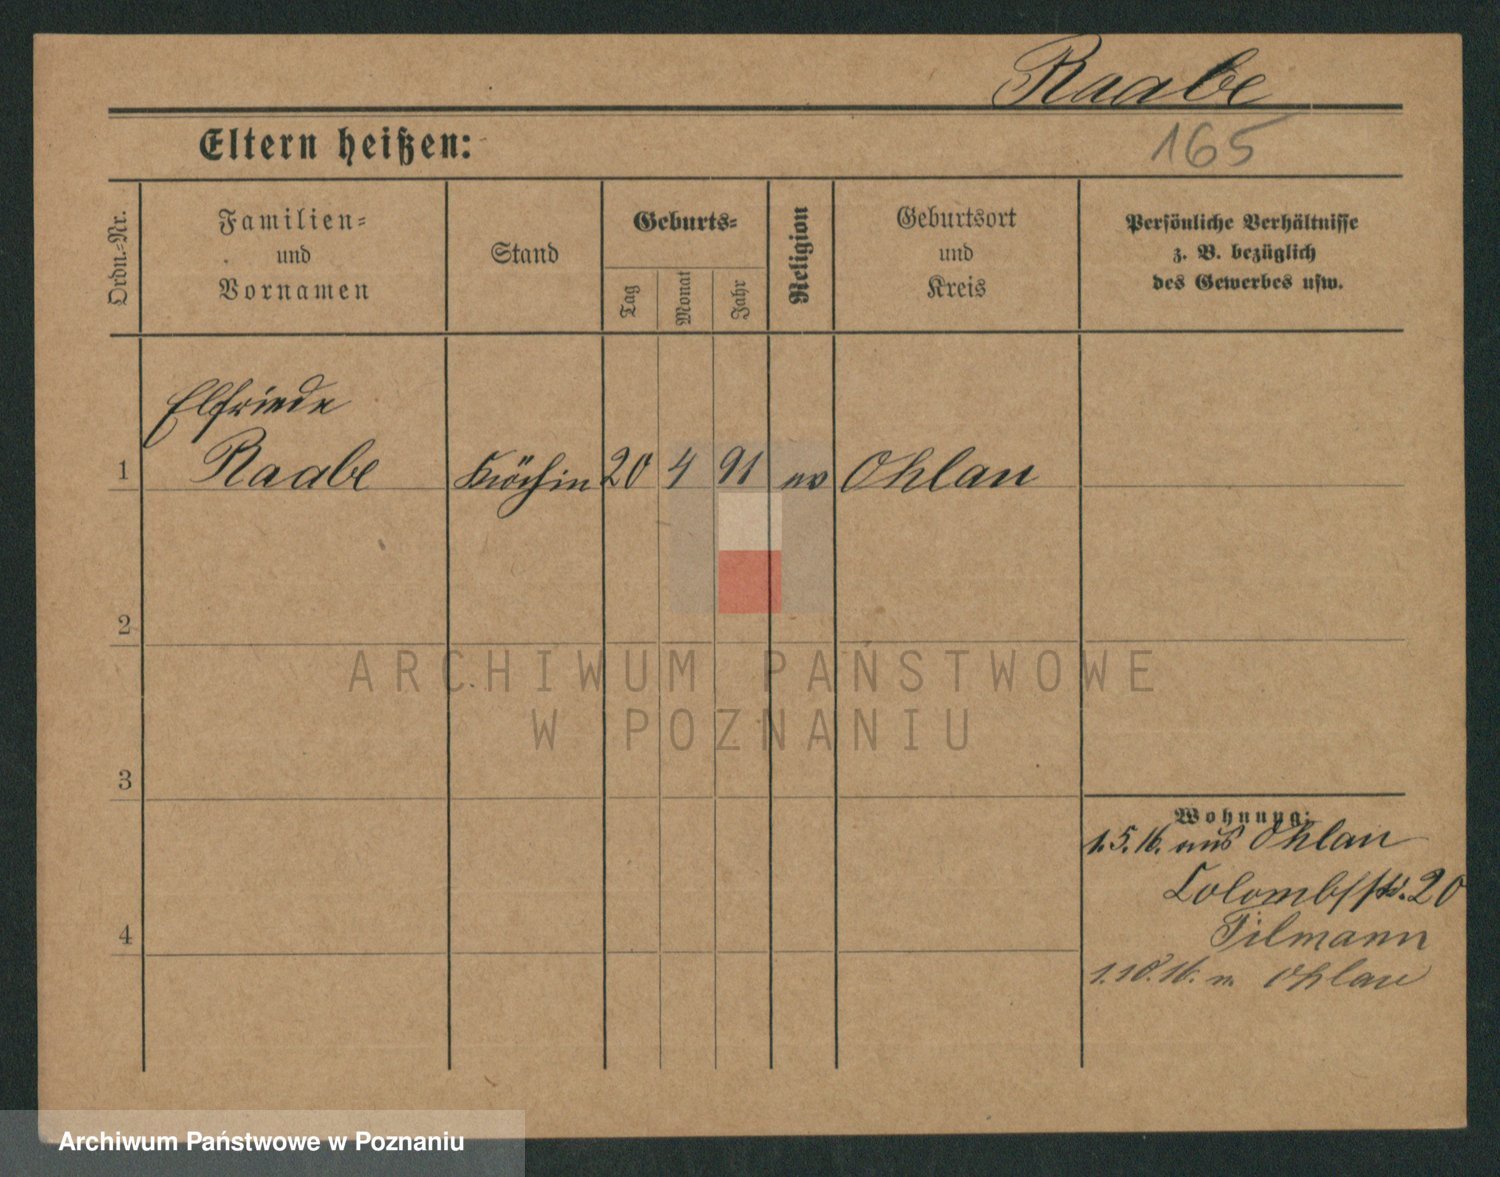 Raabe
165
Eltern heißen:
Ordn.-Nr.
Familien-
und
Vornamen
Stand
Geburts-
Tag
Monat
Jahr
Religion
Geburtsort
und
Kreis
Persönliche Verhältnisse
z. B. bezüglich
des Gewerbes usw.
Elfriede
1 Raabe Köchin 20 4 91 ev Ohlau
2
3
4
Wohnung:
1.5.16. aus Ohlau
Colombstr. 20
Tilmann
1.10.16. n. Ohlau
ARCHIWUM PAŃSTWOWE
W POZNANIU
Archiwum Państwowe w Poznaniu